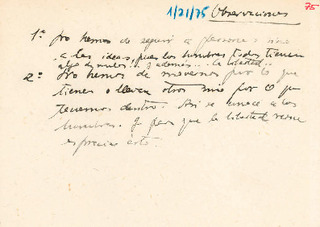 1/21/75 Observaciones 75
1º No hemos de seguir a personas sino
a las ideas, pues los hombres todos tienen
algo de malos.. y además... la libertad..
2º No hemos de movernos por lo que
tienen o llevan otros sino por lo que
tenemos dentro. Así se conoce a los
hombres. Y para que la libertad reine
es preciso esto.